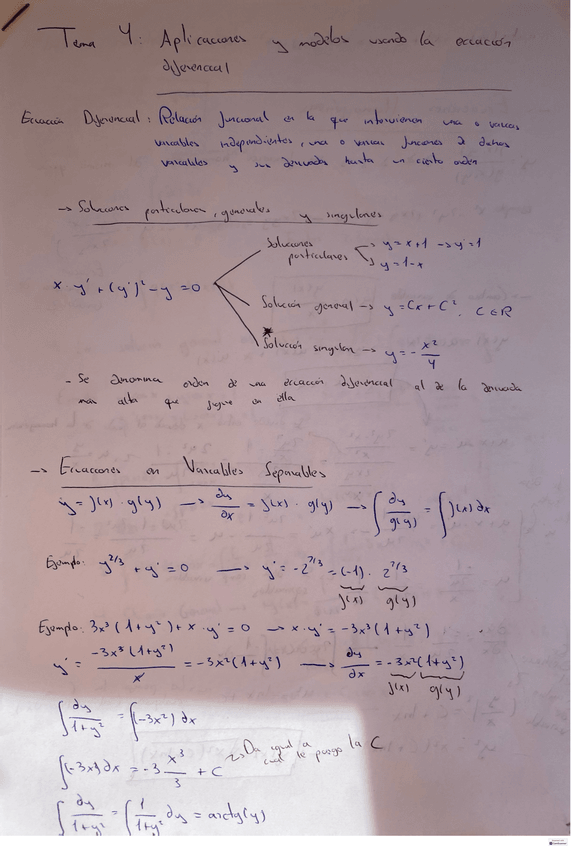 Tema 4: Aplicaciones y modelos usando la ecuación
diferencial
Ecuación Diferencial: Relación funcional en la que intervienen una o varias
variables independientes, una o varias funciones de dichas
variables y sus derivadas hasta un cierto orden
→ Soluciones particulares, generales y singulares
x · y' + (y')² - y = 0
Soluciones particulares → y = x+1 → y' = 1
→ y = 1-x
Solución general → y = Cx + C², C ∈ R
Solución singular → y = - x²/4
- Se denomina orden de una ecuación diferencial al de la derivada
más alta que figure en ella
→ Ecuaciones en Variables Separables
y' = f(x) · g(y) → dy/dx = f(x) · g(y) → ∫ dy/g(y) = ∫ f(x) dx
Ejemplo: y^2/3 + y' = 0 → y' = -2^7/3 = (-1) · 2^7/3
f(x) g(y)
Ejemplo: 3x³(1+y²) + x · y' = 0 → x · y' = -3x³(1+y²)
y' = -3x³(1+y²)/x = -3x²(1+y²) → dy/dx = -3x²(1+y²)
f(x) g(y)
∫ dy/1+y² = ∫(-3x²) dx
∫(-3x²) dx = -3 x³/3 + C → Da igual a cual le pongo la C
∫ dy/1+y² = ∫ 1/1+y² dy = arctg(y)